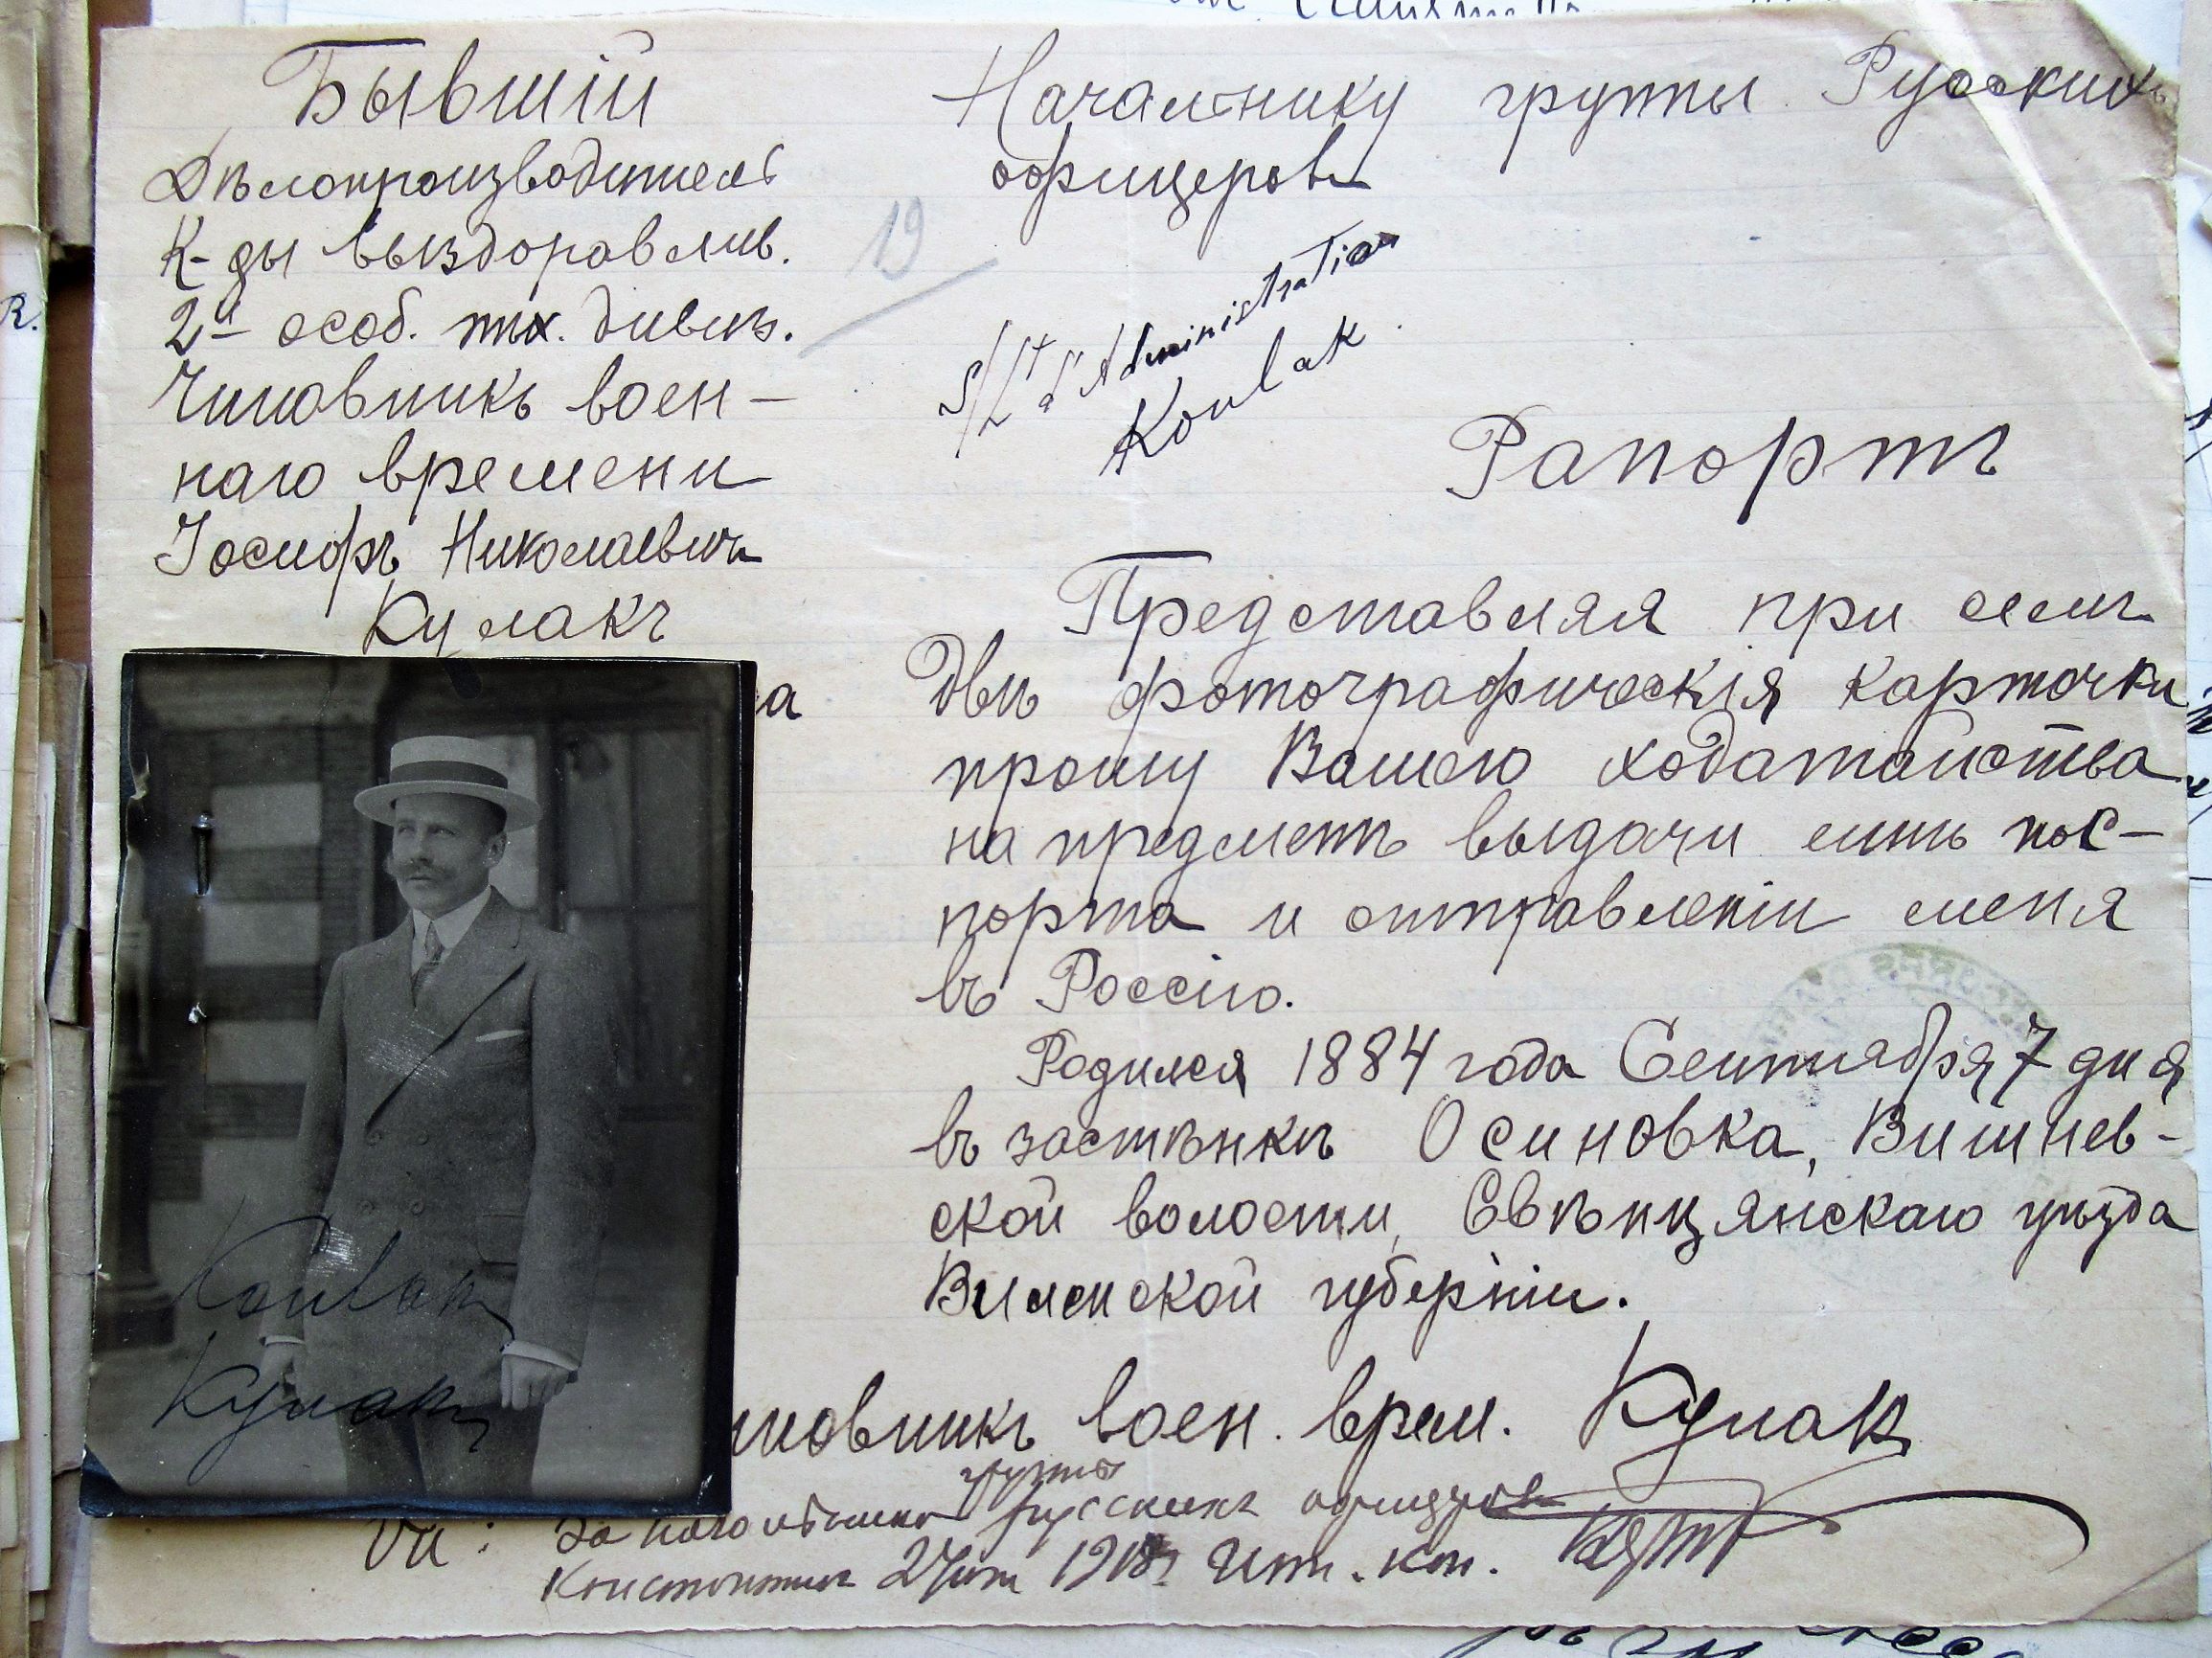 Бывшій
Дѣлопроизводитель
К-ды выздоравлив.
2й особ. пѣх. дивиз.
Чиновникъ воен-
наго времени
Іосифъ Николаевичъ
Кулакъ
а
19
Начальнику группы Русскихъ
офицеровъ
S/Lt d'Administration
Koulak.
Рапортъ
Представляя при семъ
двѣ фотографическія карточки
прошу Вашего ходатайства
на предметъ выдачи мнѣ пос-
порта и отправленіи меня
въ Россію.
Родился 1884 года Сентября 7 дня
въ застѣнкѣ Осиновка, Вишнев-
ской волости, Свѣнцянскаго уѣзда
Виленской губерніи.
иновникъ воен. врем. Кулак
Koulak
Кулак
Vu: За начальника группы русскихъ офицеровъ
1918 кап.
R.